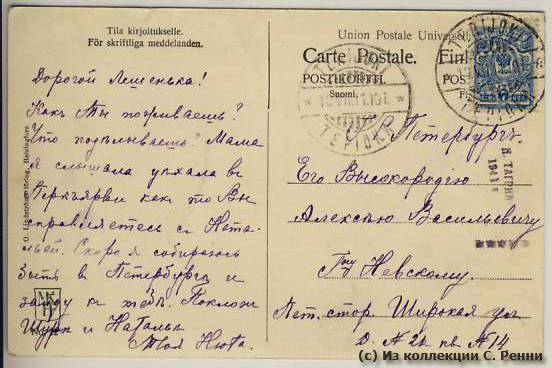 Tila kirjoitukselle.
För skriftliga meddelanden.
Дорогой Лешенька!
Какъ Ты поживаешь?
Что подѣлываешь? Мама
я слышала уѣхала въ
какъ то Вы
справляетесь съ Ната-
льей. Скоро я собираюсь
быть въ Петербургѣ и
зайду къ тебѣ. Поклонъ
Шурѣ и Натальѣ
Твоя Нюта.
Union Postale Universelle
Carte Postale.
POSTIKORTTI.
Suomi.
TERIJOKI
С. Петербургъ.
Его Высокородію
Алексѣю Васильевичу
Гну Невскому
Пет. стор. Широкая ул
д. № 21 кв № 14
(c) Из коллекции С. Ренни